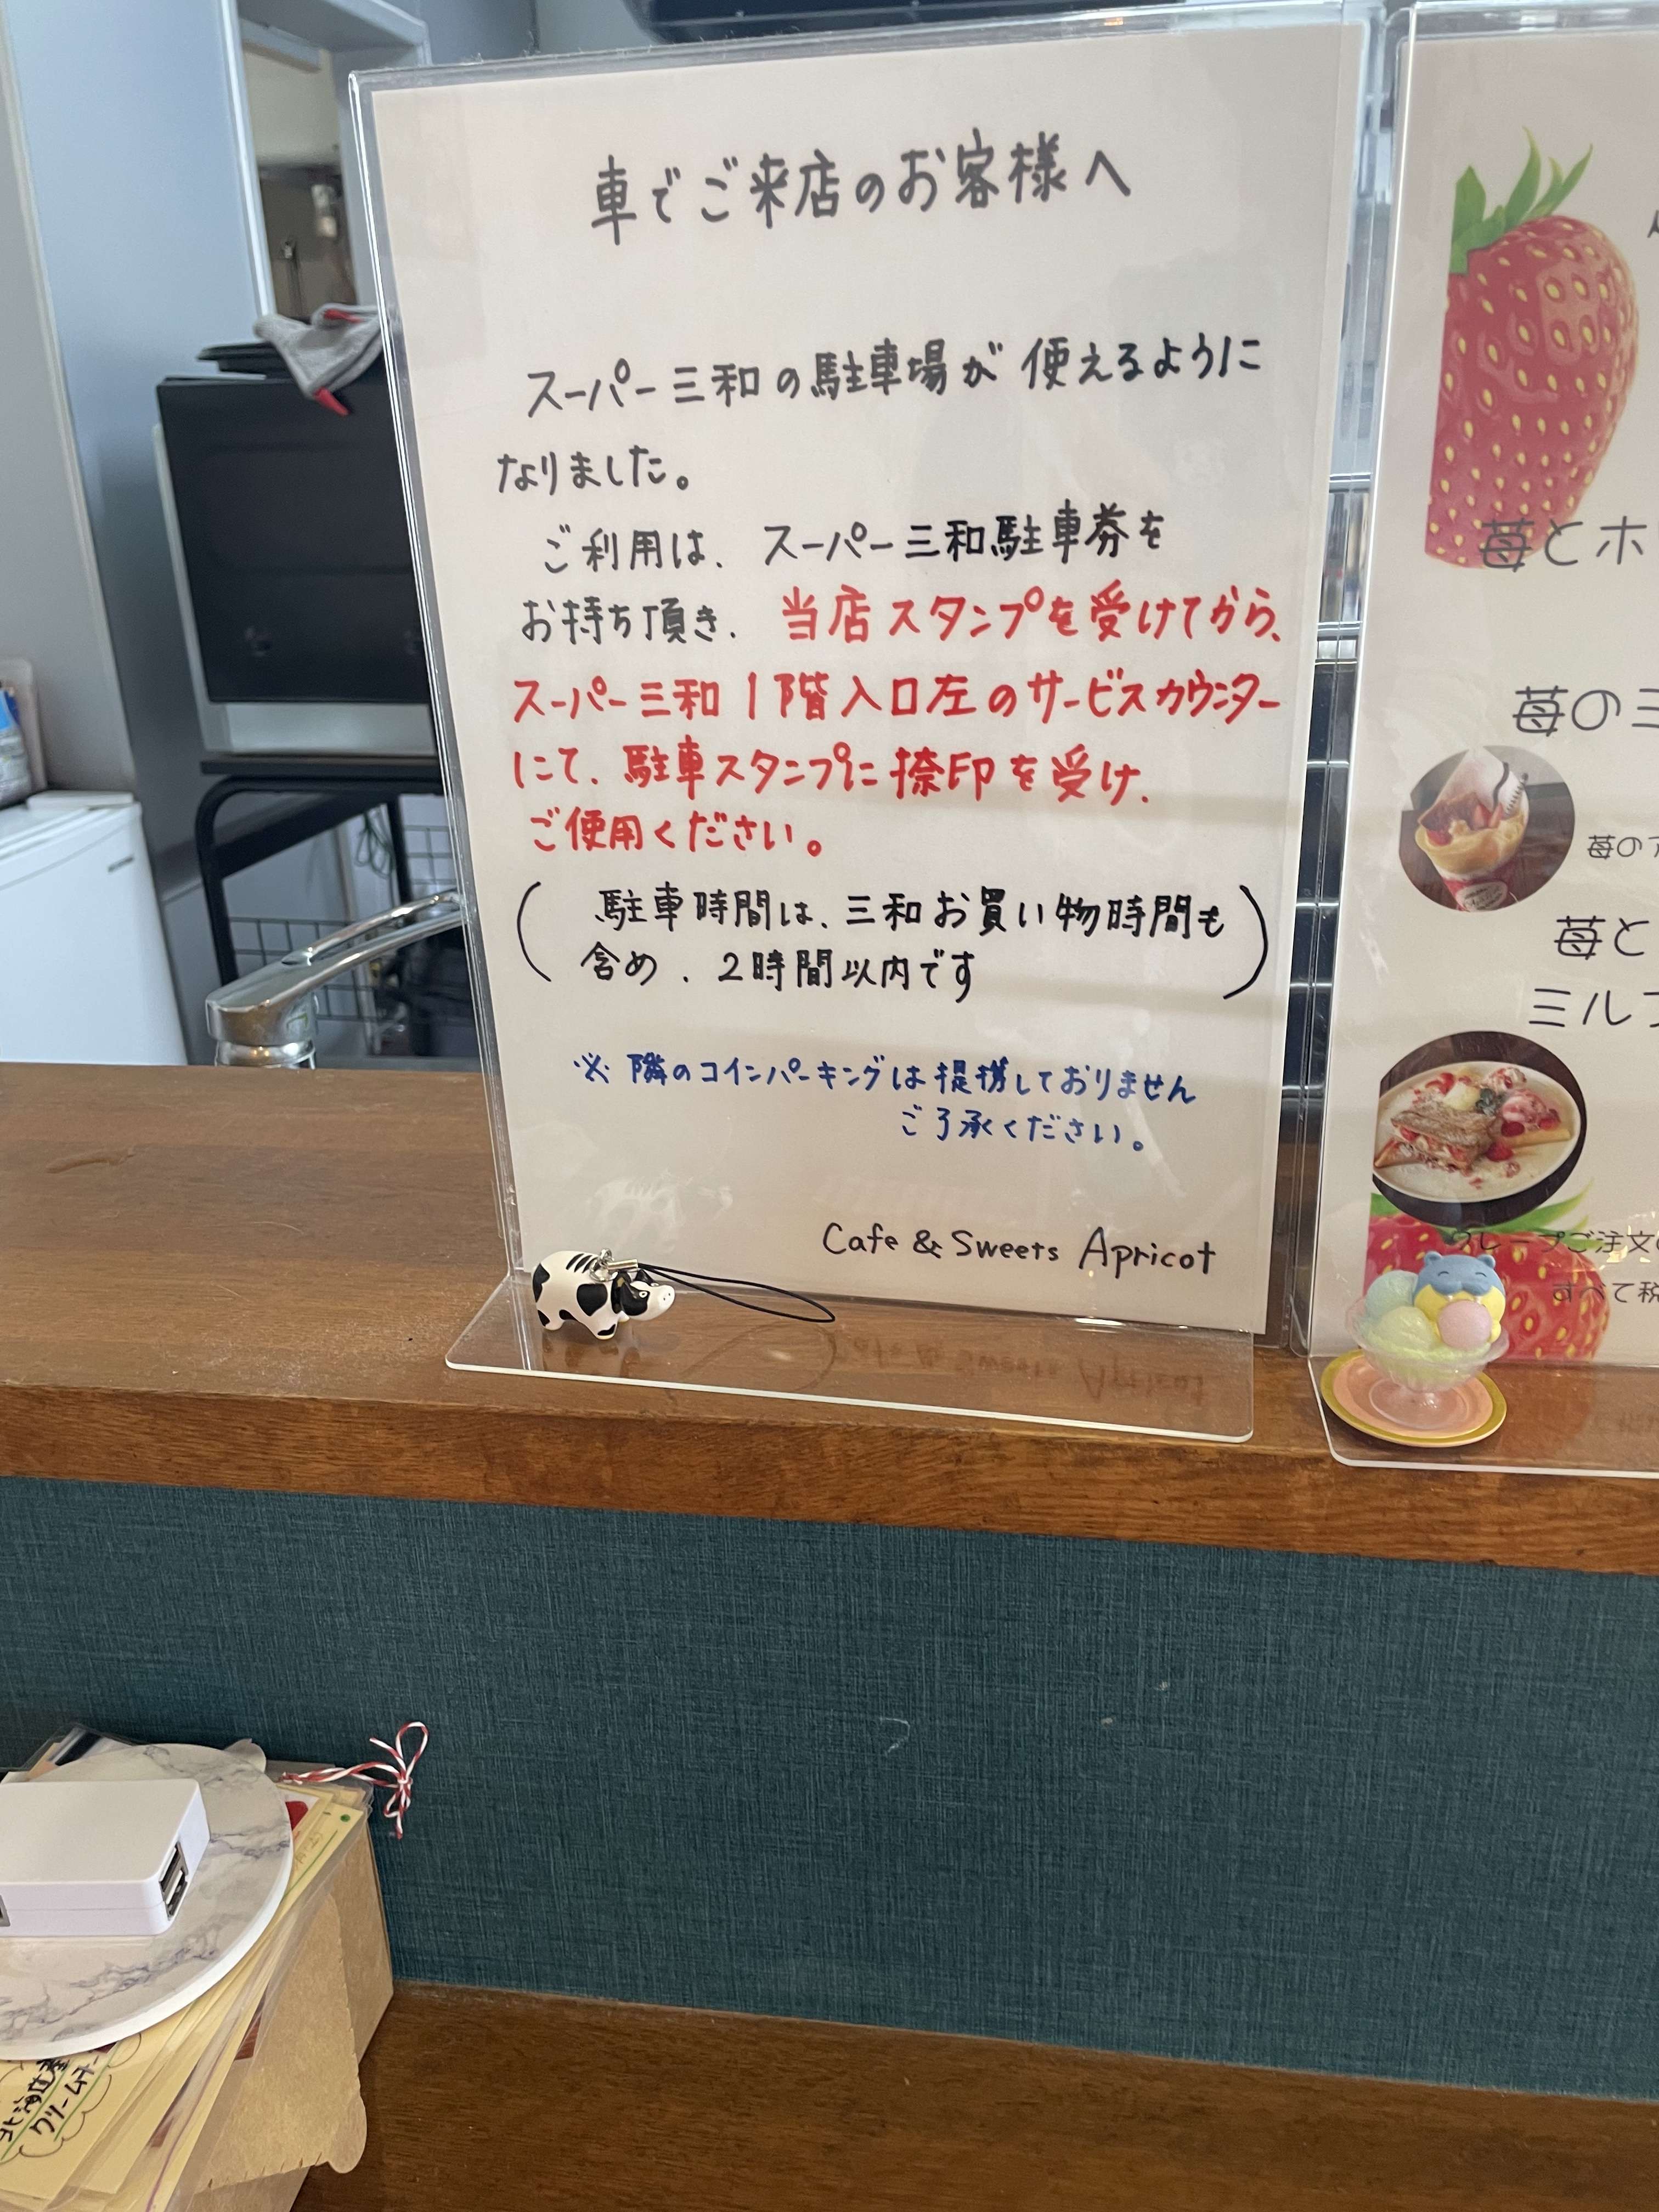 車でご来店のお客様へ
スーパー三和の駐車場が使えるように
なりました。
ご利用は、スーパー三和駐車券を
お持ち頂き、当店スタンプを受けてから、
スーパー三和1階入口左のサービスカウンター
にて、駐車スタンプに捺印を受け、
ご使用ください。
(駐車時間は、三和お買い物時間も
含め、2時間以内です)
※隣のコインパーキングは提携しておりません
ご了承ください。
Cafe & Sweets Apricot
苺とホ
苺のミ
苺のア
苺と
ミルフ
クレープご注文の
すべて税
北海道産
クリームチー